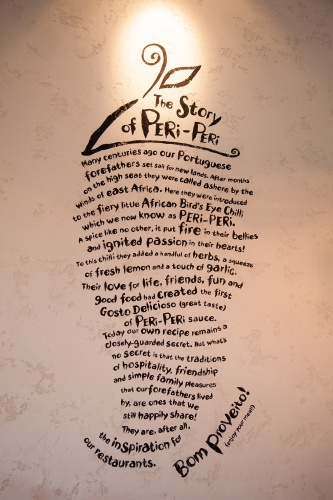 The Story
of PERi-PERi
Many centuries ago our Portuguese
forefathers set sail for new lands. After months
on the high seas they were called ashore by the
winds of east Africa. Here they were introduced
to the fiery little African Bird's Eye Chilli
which we now know as PERi-PERi.
A spice like no other, it put fire in their bellies
and ignited passion in their hearts!
To this chilli they added a handful of herbs, a squeeze
of fresh lemon and a touch of garlic.
Their love for life, friends, fun and
good food had created the first
Gosto Delicioso (great taste)
of PERi-PERi sauce.
Today our own recipe remains a
closely-guarded secret. But what's
no secret is that the traditions
of hospitality, friendship
and simple family pleasures
that our forefathers lived
by, are ones that we
still happily share!
They are, after all,
the inspiration for
our restaurants.
Bom proveito!
(enjoy your meal)